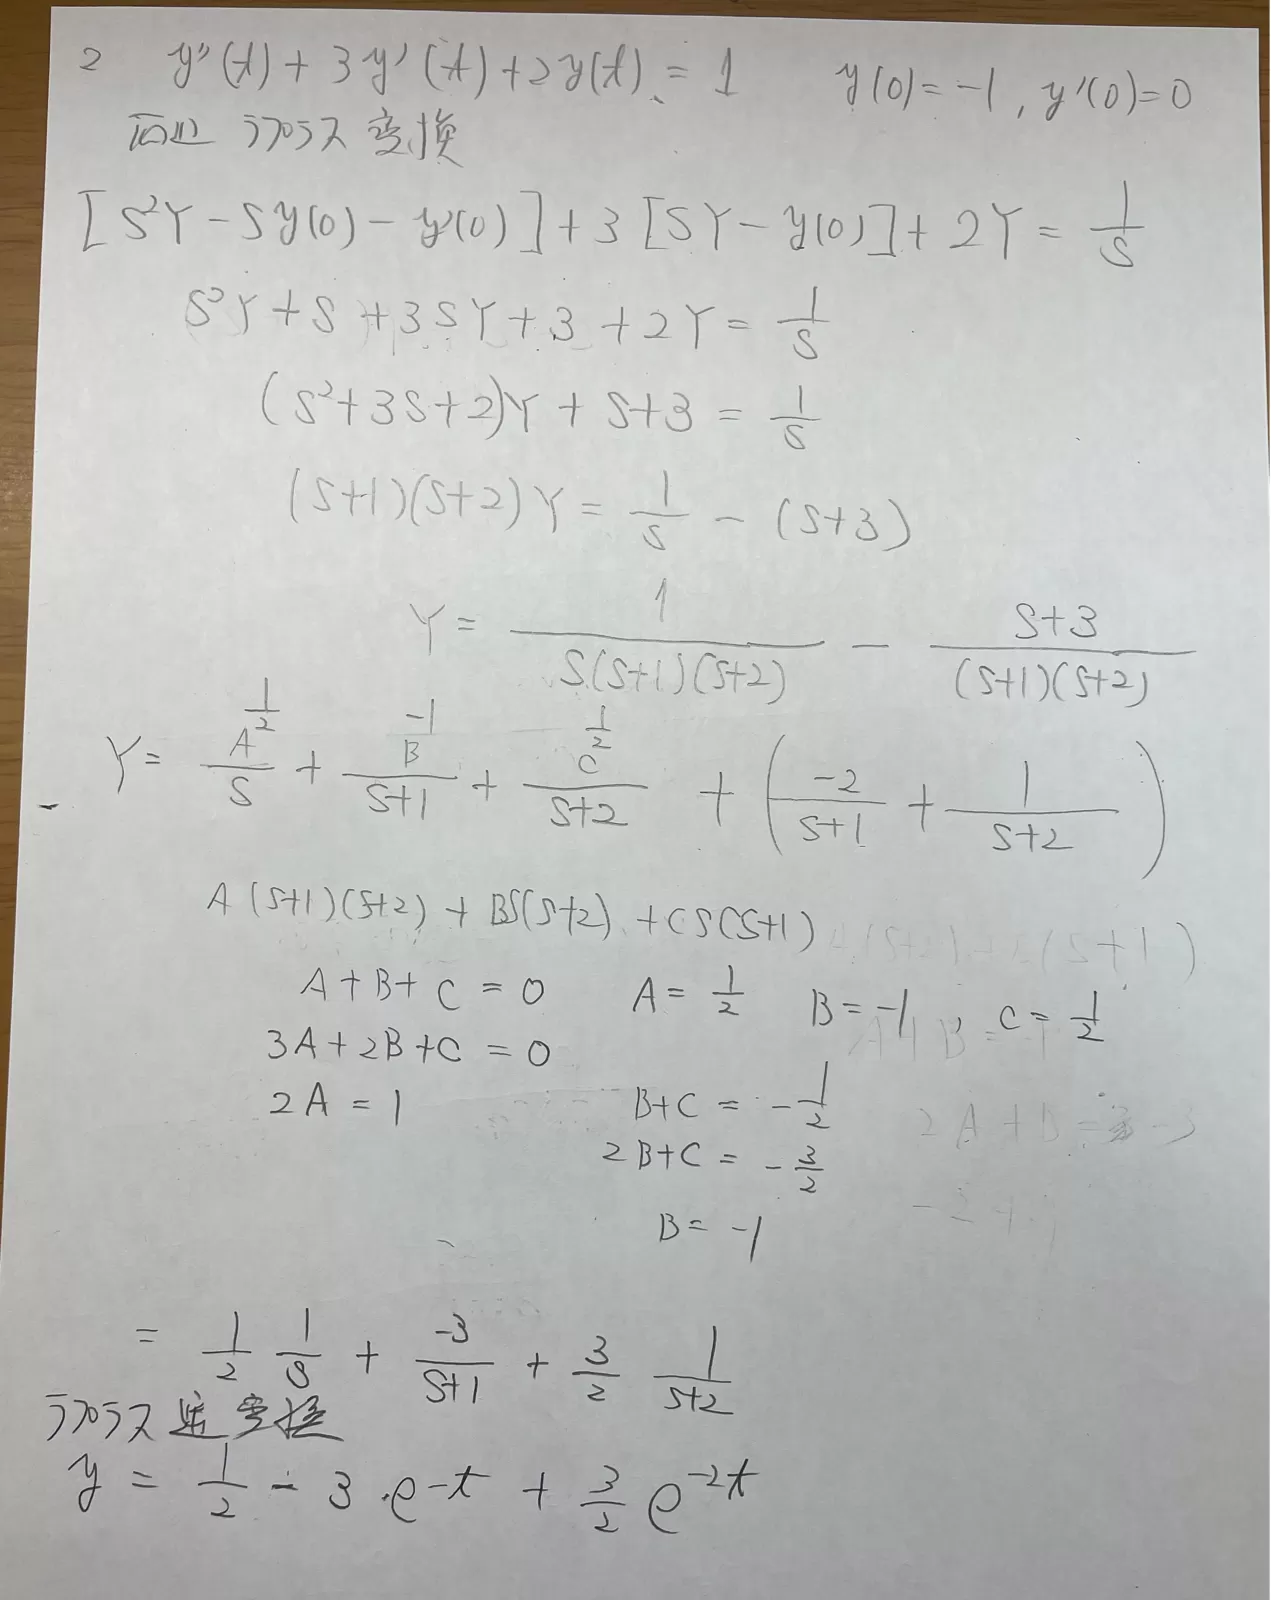 2 y''(t) + 3y'(t) + 2y(t) = 1 y(0) = -1, y'(0) = 0
両辺 ラプラス変換
[S²Y - Sy(0) - y'(0)] + 3[SY - y(0)] + 2Y = 1/S
S²Y + S + 3SY + 3 + 2Y = 1/S
(S² + 3S + 2)Y + S + 3 = 1/S
(S+1)(S+2)Y = 1/S - (S+3)
Y = 1/(S(S+1)(S+2)) - (S+3)/((S+1)(S+2))
1/2 -1 1/2
Y = A/S + B/(S+1) + C/(S+2) + (-2/(S+1) + 1/(S+2))
A(S+1)(S+2) + BS(S+2) + CS(S+1)
A + B + C = 0 A = 1/2 B = -1, C = 1/2
3A + 2B + C = 0
2A = 1 B + C = -1/2
2B + C = -3/2
B = -1
= 1/2 1/S + -3/(S+1) + 3/2 1/(S+2)
ラプラス逆変換
y = 1/2 - 3·e^-t + 3/2 e^-2t